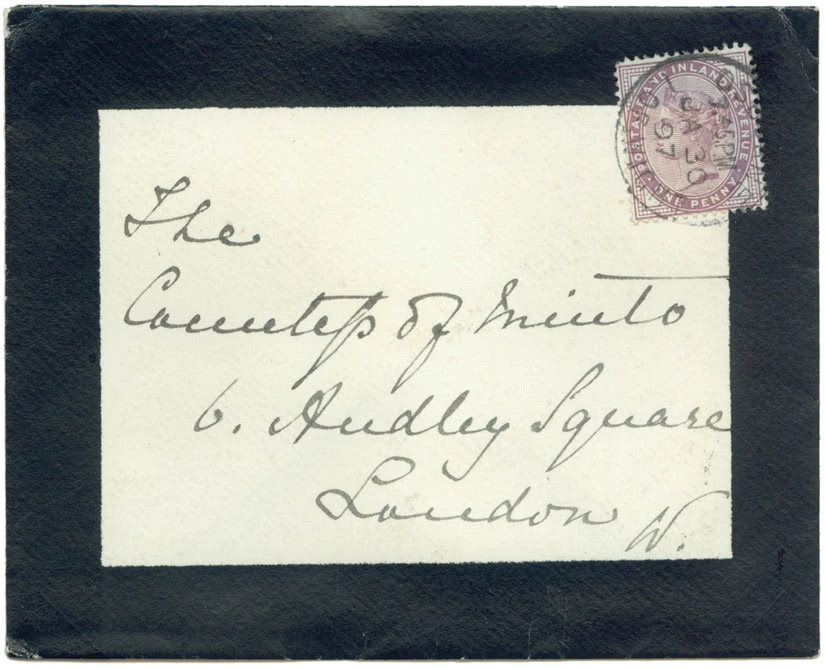 POSTAGE AND INLAND REVENUE
ONE PENNY
PM
JA 30
97
The
Countess of Minto
6. Audley Square
London
W.